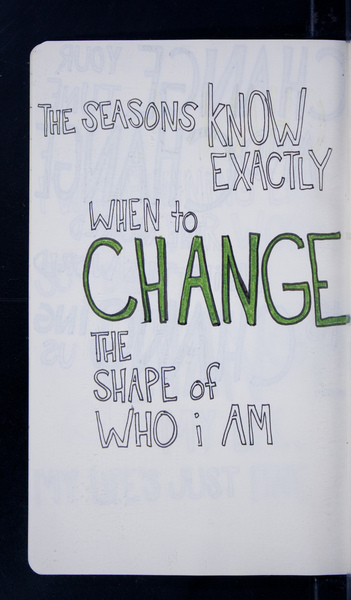 THE SEASONS KNOW
EXACTLY
WHEN to
CHANGE
THE
SHAPE of
WHO i AM